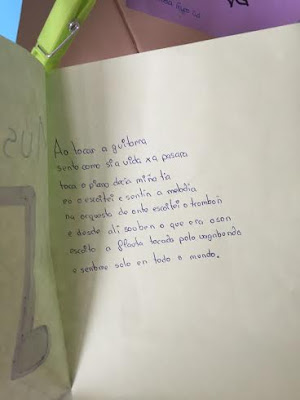 Ao tocar a guitarra
sente como si a vida xa pasara
toca o piano decía miña tía
eo o escoitei e sentin a melodía
na orquesta de onte escoitei o trombón
e desde alí souben o que era o son
escoito a flauta tocada polo vagabundo
e sentirse solo en todo o mundo.